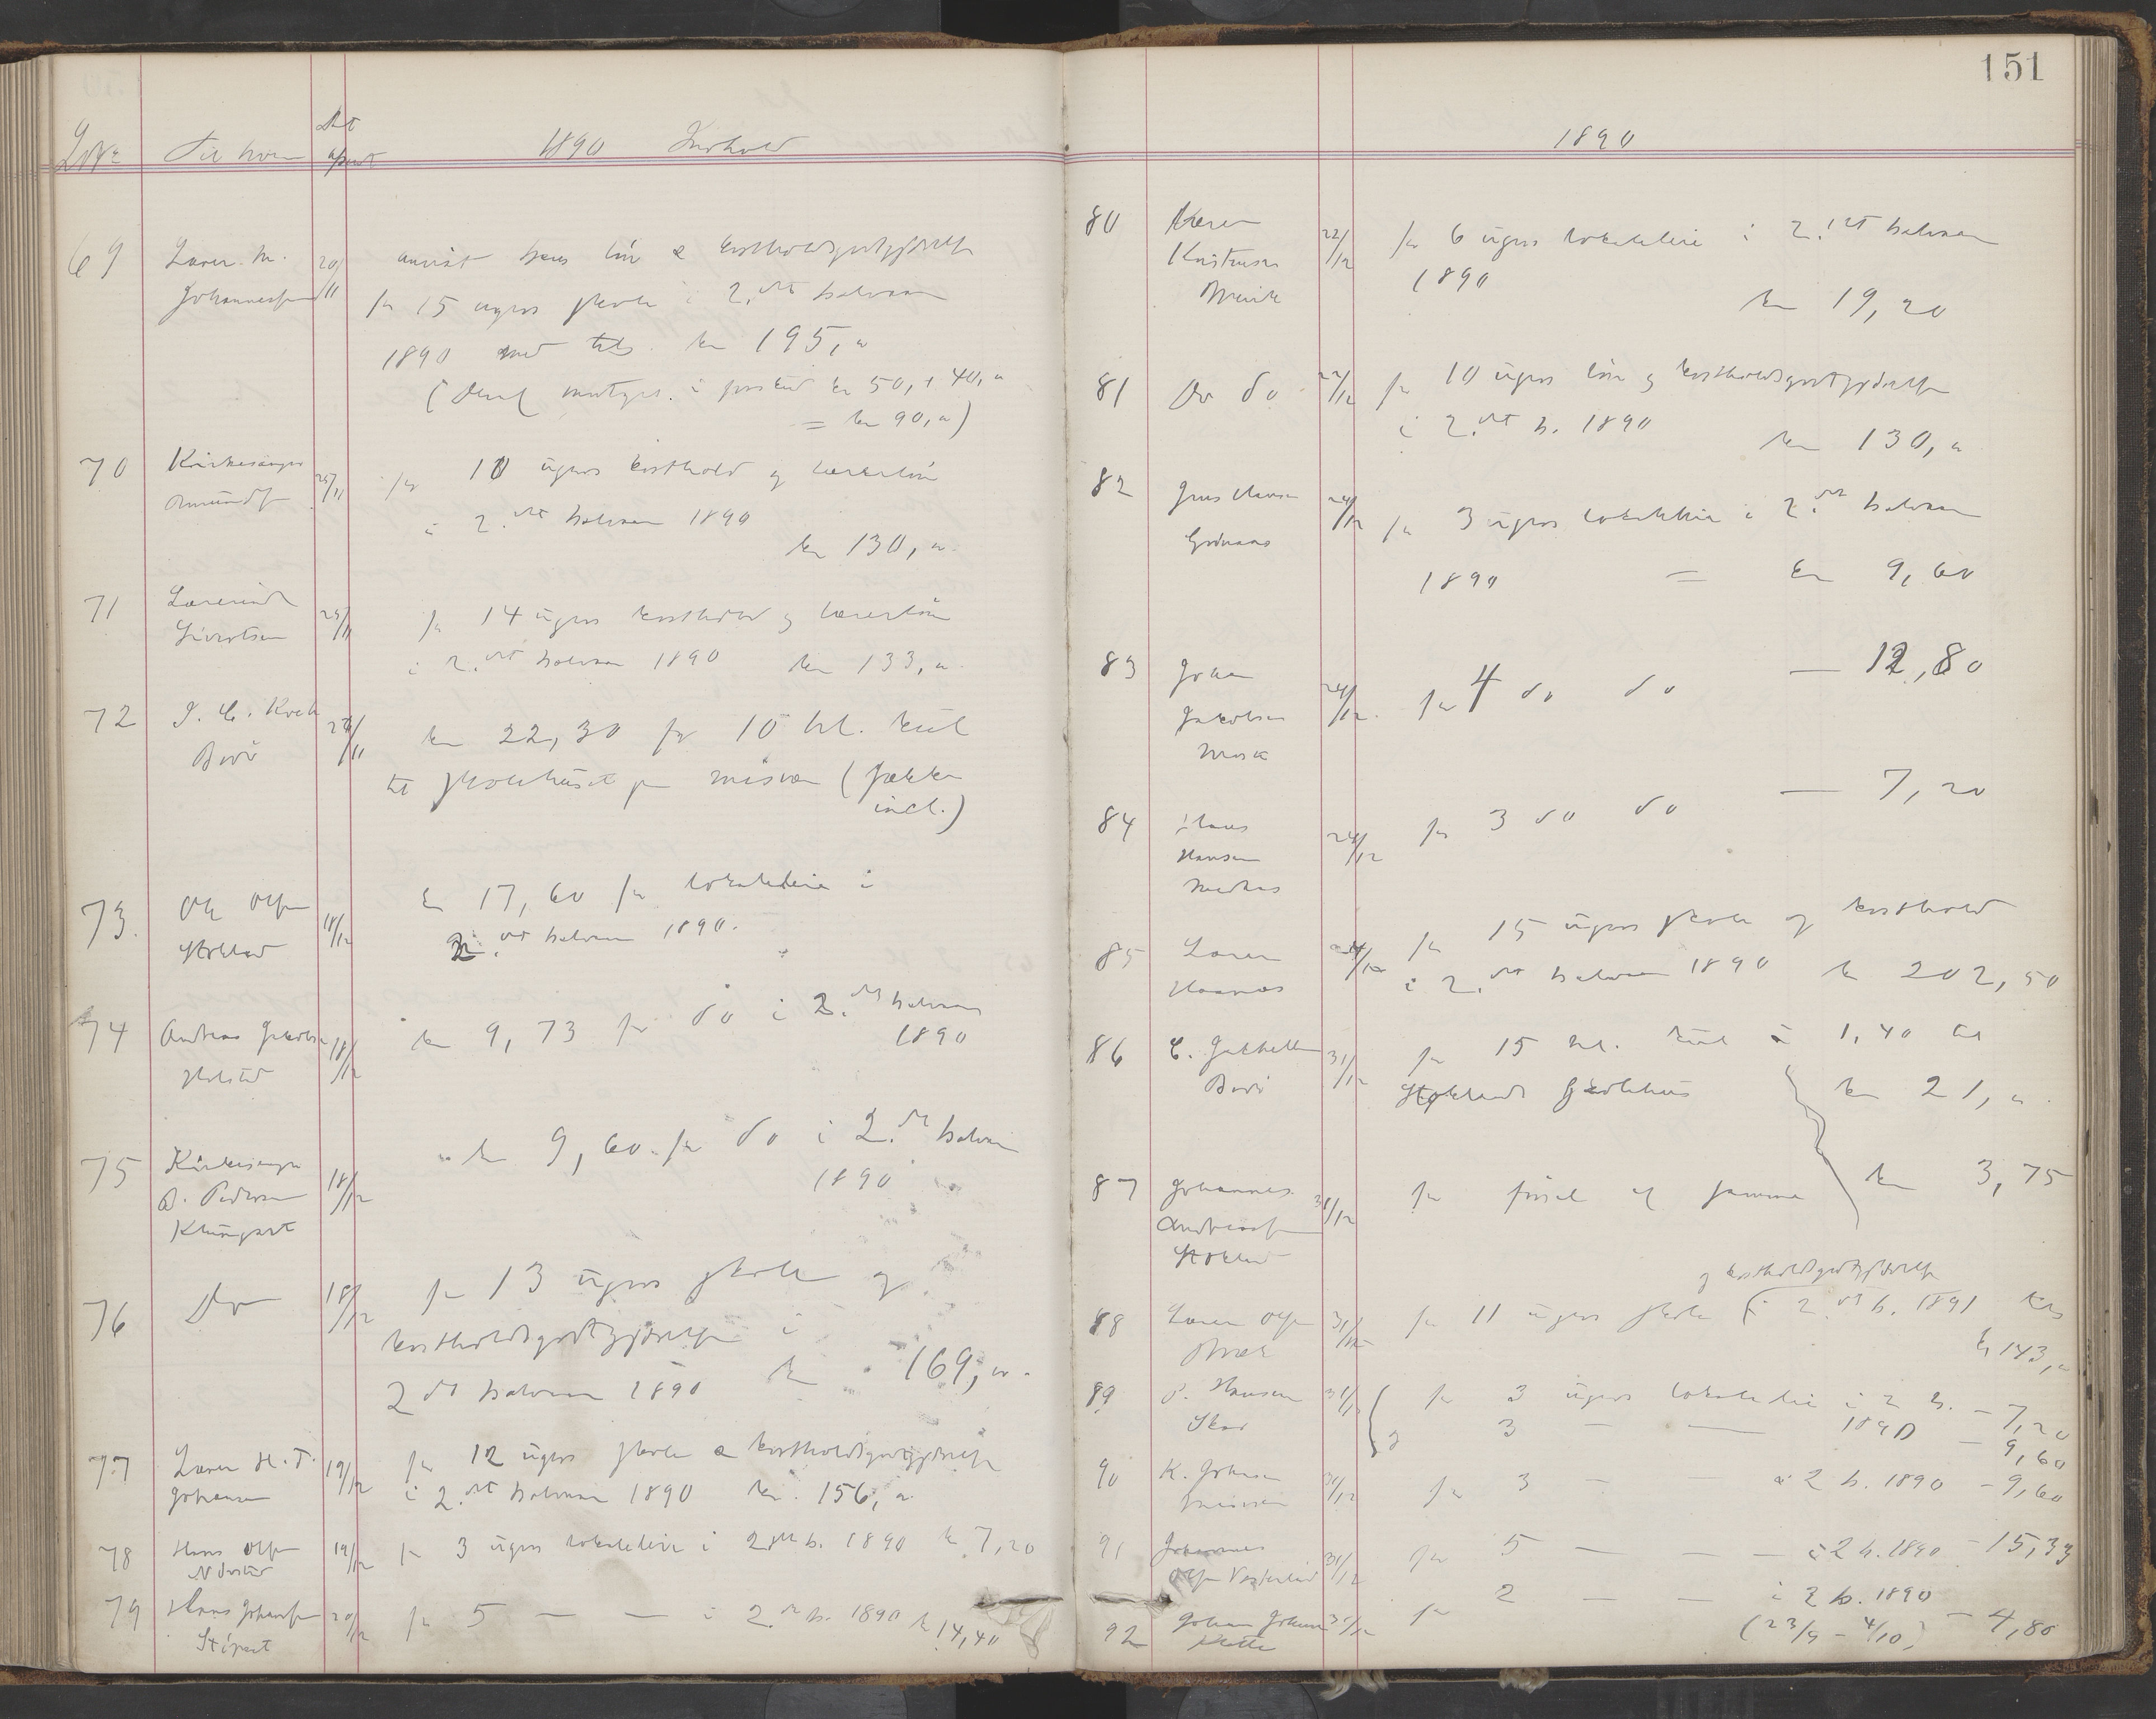 Til hvem
1890 Indhold
69 Lærer M. 20/11 anvist hans løn & kostholdsgodtgjørelse
Johannessen for 15 ugers skole i 2. det halvaar
1890 med tils. kr 195,
(Deraf modtget. i forskud kr 50, + 40,
= kr 90, )
70 Kirkesanger 25/11 for 10 ugers kosthold og lærerløn
Amundsen i 2. det halvaar 1890
kr 130,
71 Lærerinde 25/11 for 14 ugers kosthold og lærerløn
Sivertsen i 2. det halvaar 1890 kr 133,
72 J. C. Koch /11 kr 22,30 for 10 hl. kul
Bodö til skolehuset paa Misvær (sække
incl.)
73. Ole Olsen 18/12 kr 17,60 for lokaleleie i
Stokland 2. det halvaar 1890.
74 Andreas Jakobsen 18/12 kr 9,73 for do i 2. det halvaar
1890
75 Kirkesanger 18/12 kr 9,60 for do i 2. det halvaar
P. Pedersen 1890
Klungset
76 Do 18/12 for 13 ugers skole og
kostholdsgodtgjørelse i
2 det halvaar 1890 kr 169,
77 Lærer H. T. 19/12 for 12 ugers skole & kostholdsgodtgjørelse
Johansen i 2. det halvaar 1890 kr. 156,
78 Hans Olsen 19/12 for 3 ugers lokaleleie i 2 det h. 1890 kr 7,20
79 Hans Johansen 20/12 for 5 — — i 2. det h. 1890 kr 14,40
151
1890
80 Lærer 22/12 for 6 ugers lokaleleie i 2. det halvaar
Kristensen 1890
kr 19,20
81 Do do 22/12 for 10 ugers løn og kostholdsgodtgjørelse
i 2. det h. 1890
kr 130,
82 Jens Hansen 24/12 for 3 ugers lokaleleie i 2. det halvaar
1890 = kr 9,60
83 Johan 24/12. for 4 do do — 12,80
Jakobsen
84 Hans 24/12 for 3 do do — 7,20
Hansen
85 Lærer 24/12 for 15 ugers skole og kosthold
i 2. det halvaar 1890 kr 202,50
86 C. Jakhelln 31/12 for 15 hl. kul à 1,40 til
Bodö Stoklands skolehus kr 21,
87 Johannes 31/12 for førsel af samme kr 3,75
Andreassen
Stokland
og kostholdsgodtgjørelse
88 Lærer Olsen 31/12 for 11 ugers skole (i 2 det h. 1891 tils
kr 143,
89 P. Hansen 31/12 for 3 ugers lokaleleie i 2 h. — 7,20
og 3 — — 1890 — 9,60
90 K. Johnsen 31/12 for 3 — — i 2 h. 1890 — 9,60
91 Johannes 31/12 for 5 — — — i 2 h. 1890 — 15,33
Olsen
92 Johan Johnsen 31/12 for 2 — — i 2 h. 1890
(23/9 — 4/10) — 4,80